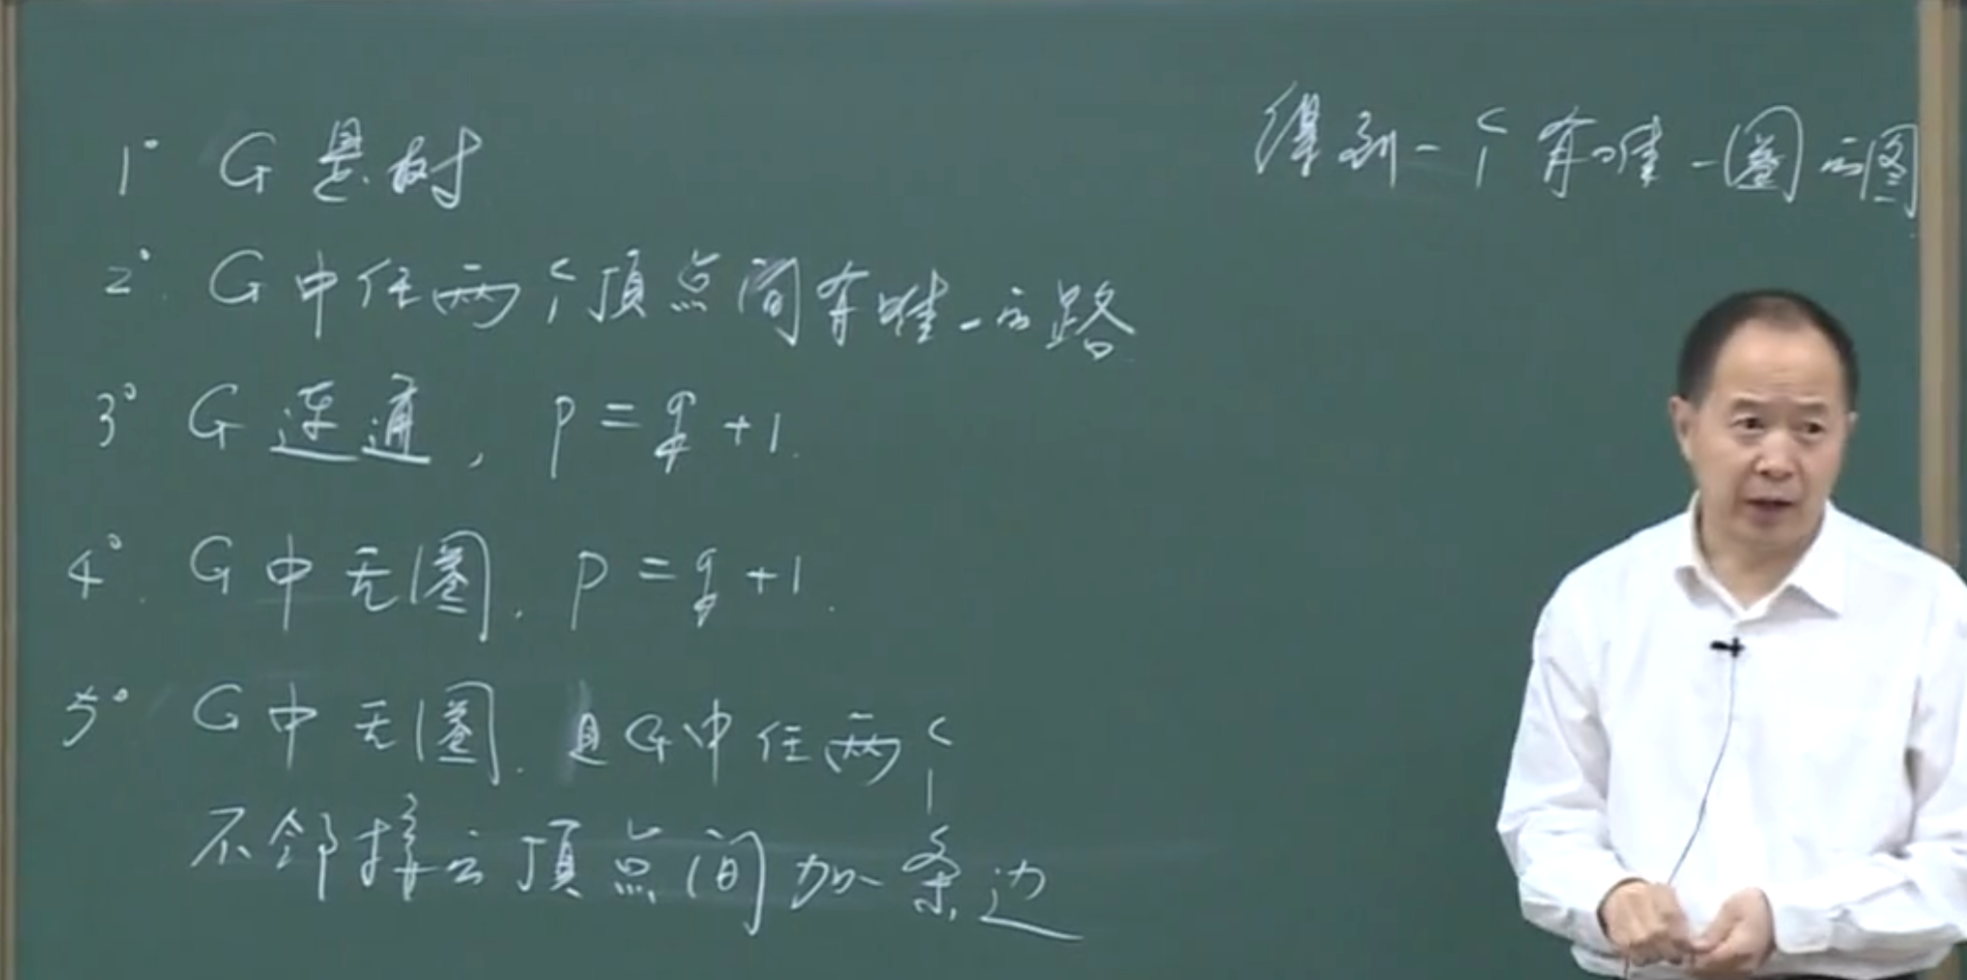 1° G是树
2°. G中任两个顶点间有唯一的路
3° G连通, p=q+1.
4°. G中无圈. p=q+1.
5° G中无圈. 且G中任两个
不邻接之顶点间加一条边
得到一个有唯一圈的图